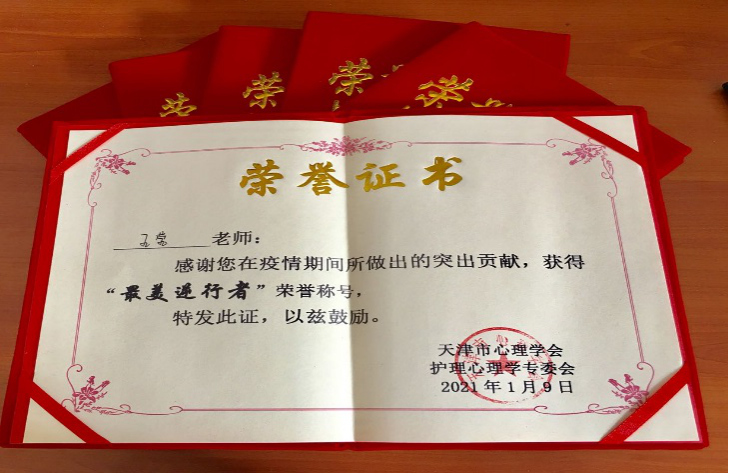 荣
荣
荣誉证书
老师：
感谢您在疫情期间所做出的突出贡献，获得
“最美逆行者”荣誉称号，
特发此证，以兹鼓励。
天津市心理学会
护理心理学专委会
2021年1月9日